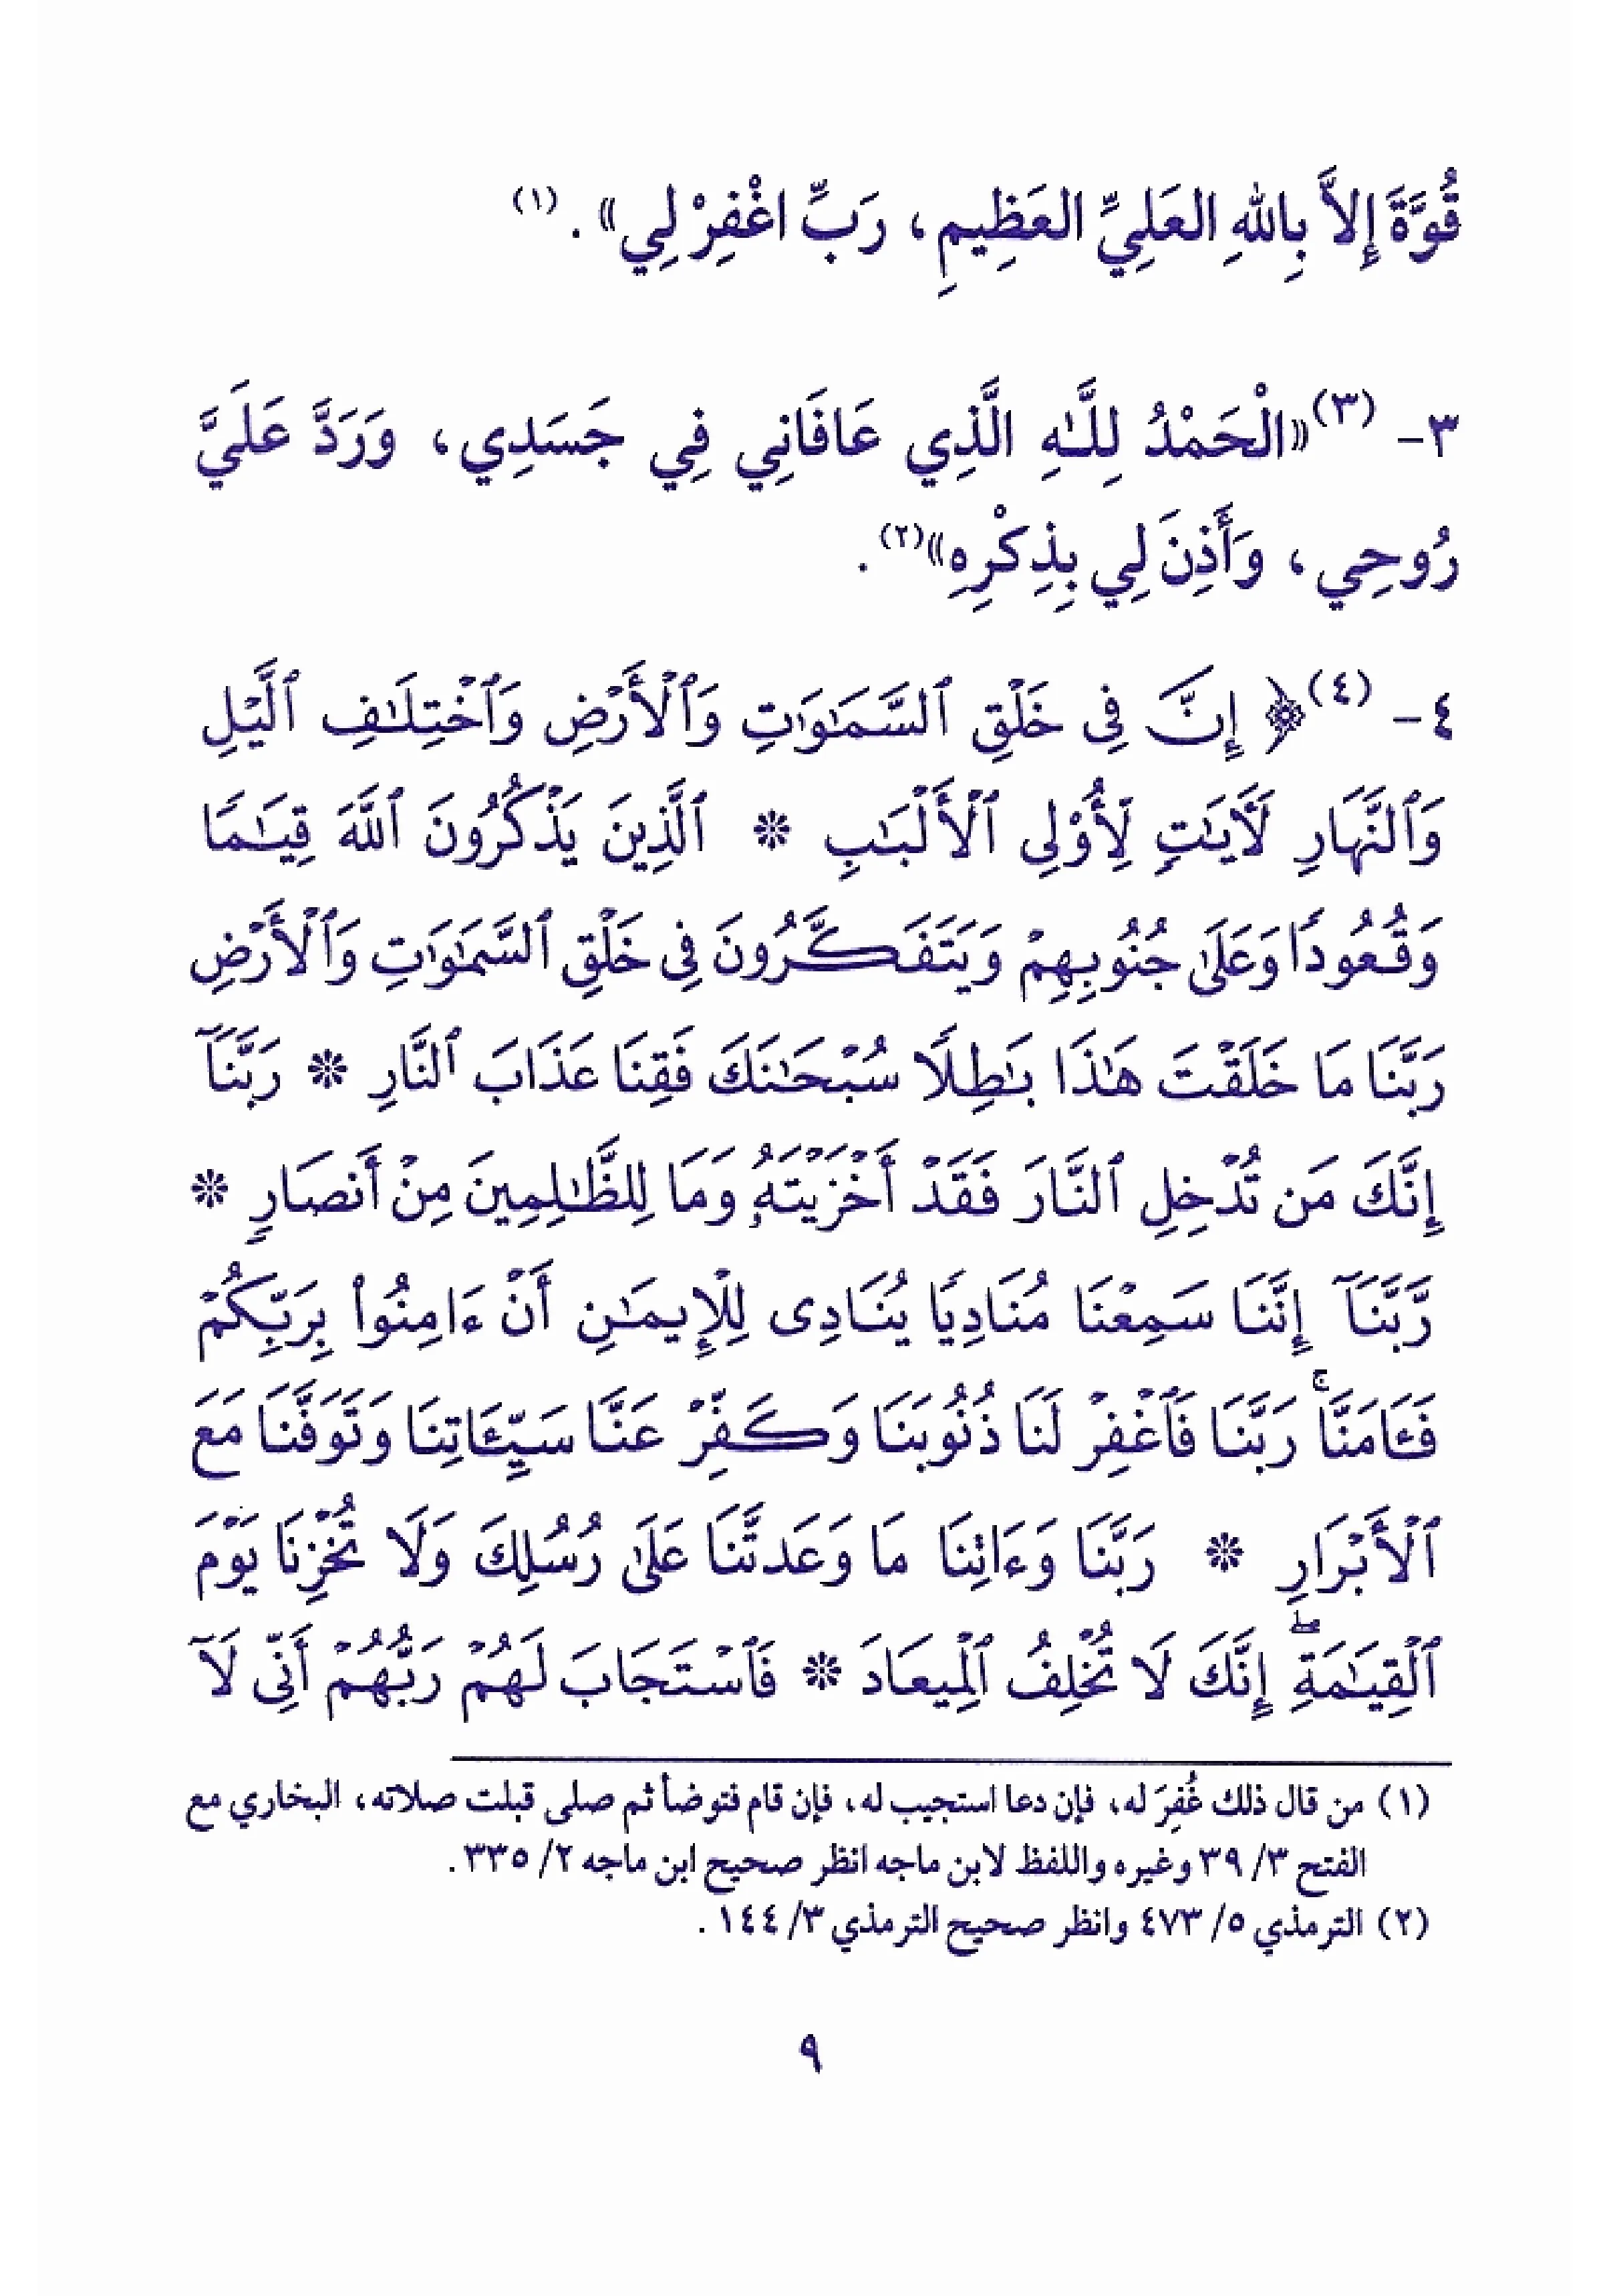 قُوَّةَ إِلاَّ بِاللهِ العَلِيِّ العَظِيمِ، رَبِّ اغْفِرْ لِي». (١)
٣- (٣)«الْحَمْدُ لِلَّـٰهِ الَّذِي عَافَانِي فِي جَسَدِي، وَرَدَّ عَلَيَّ
رُوحِي، وَأَذِنَ لِي بِذِكْرِهِ»(٢).
٤- (٤)﴿ إِنَّ فِى خَلْقِ ٱلسَّمَـٰوَٰتِ وَٱلْأَرْضِ وَٱخْتِلَـٰفِ ٱلَّيْلِ
وَٱلنَّهَارِ لَأَيَـٰتٍ لِّأُوْلِى ٱلْأَلْبَـٰبِ * ٱلَّذِينَ يَذْكُرُونَ ٱللَّهَ قِيَـٰمًا
وَقُعُودًا وَعَلَىٰ جُنُوبِهِمْ وَيَتَفَكَّرُونَ فِى خَلْقِ ٱلسَّمَـٰوَٰتِ وَٱلْأَرْضِ
رَبَّنَا مَا خَلَقْتَ هَـٰذَا بَـٰطِلًا سُبْحَـٰنَكَ فَقِنَا عَذَابَ ٱلنَّارِ * رَبَّنَآ
إِنَّكَ مَن تُدْخِلِ ٱلنَّارَ فَقَدْ أَخْزَيْتَهُۥ وَمَا لِلظَّـٰلِمِينَ مِنْ أَنصَارٍ *
رَّبَّنَآ إِنَّنَا سَمِعْنَا مُنَادِيًا يُنَادِى لِلْإِيمَـٰنِ أَنْ ءَامِنُوا۟ بِرَبِّكُمْ
فَـَٔامَنَّا ۚ رَبَّنَا فَٱغْفِرْ لَنَا ذُنُوبَنَا وَكَفِّرْ عَنَّا سَيِّـَٔاتِنَا وَتَوَفَّنَا مَعَ
ٱلْأَبْرَارِ * رَبَّنَا وَءَاتِنَا مَا وَعَدتَّنَا عَلَىٰ رُسُلِكَ وَلَا تُخْزِنَا يَوْمَ
ٱلْقِيَـٰمَةِ ۖ إِنَّكَ لَا تُخْلِفُ ٱلْمِيعَادَ * فَٱسْتَجَابَ لَهُمْ رَبُّهُمْ أَنِّى لَآ
(١) من قال ذلك غُفِرَ له، فإن دعا استجيب له، فإن قام فتوضأ ثم صلى قبلت صلاته، البخاري مع
الفتح ٣/ ٣٩ وغيره واللفظ لابن ماجه انظر صحيح ابن ماجه ٢/ ٣٣٥.
(٢) الترمذي ٥/ ٤٧٣ وانظر صحيح الترمذي ٣/ ١٤٤.
٩